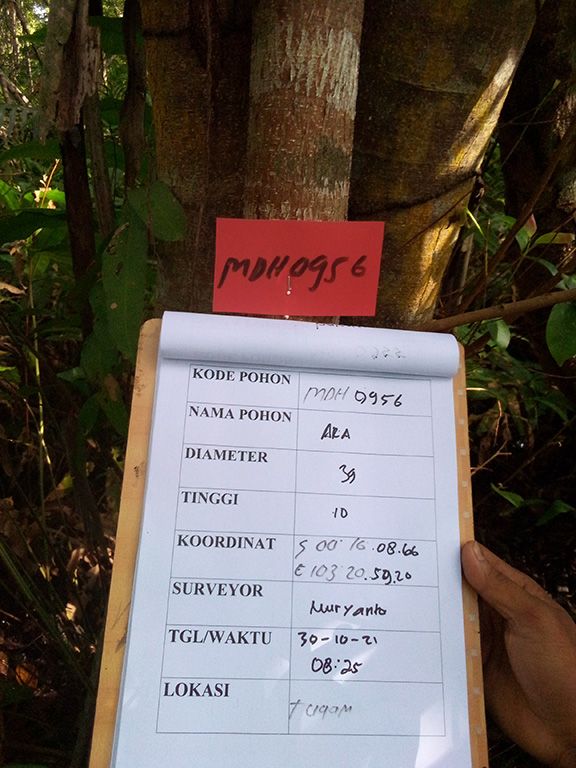 MDH0956
KODE POHON MDH 0956
NAMA POHON ARA
DIAMETER 39
TINGGI 10
KOORDINAT S 00 16.08.66
E 103 20.59.20
SURVEYOR Nuryanto
TGL/WAKTU 30-10-21
08:25
LOKASI